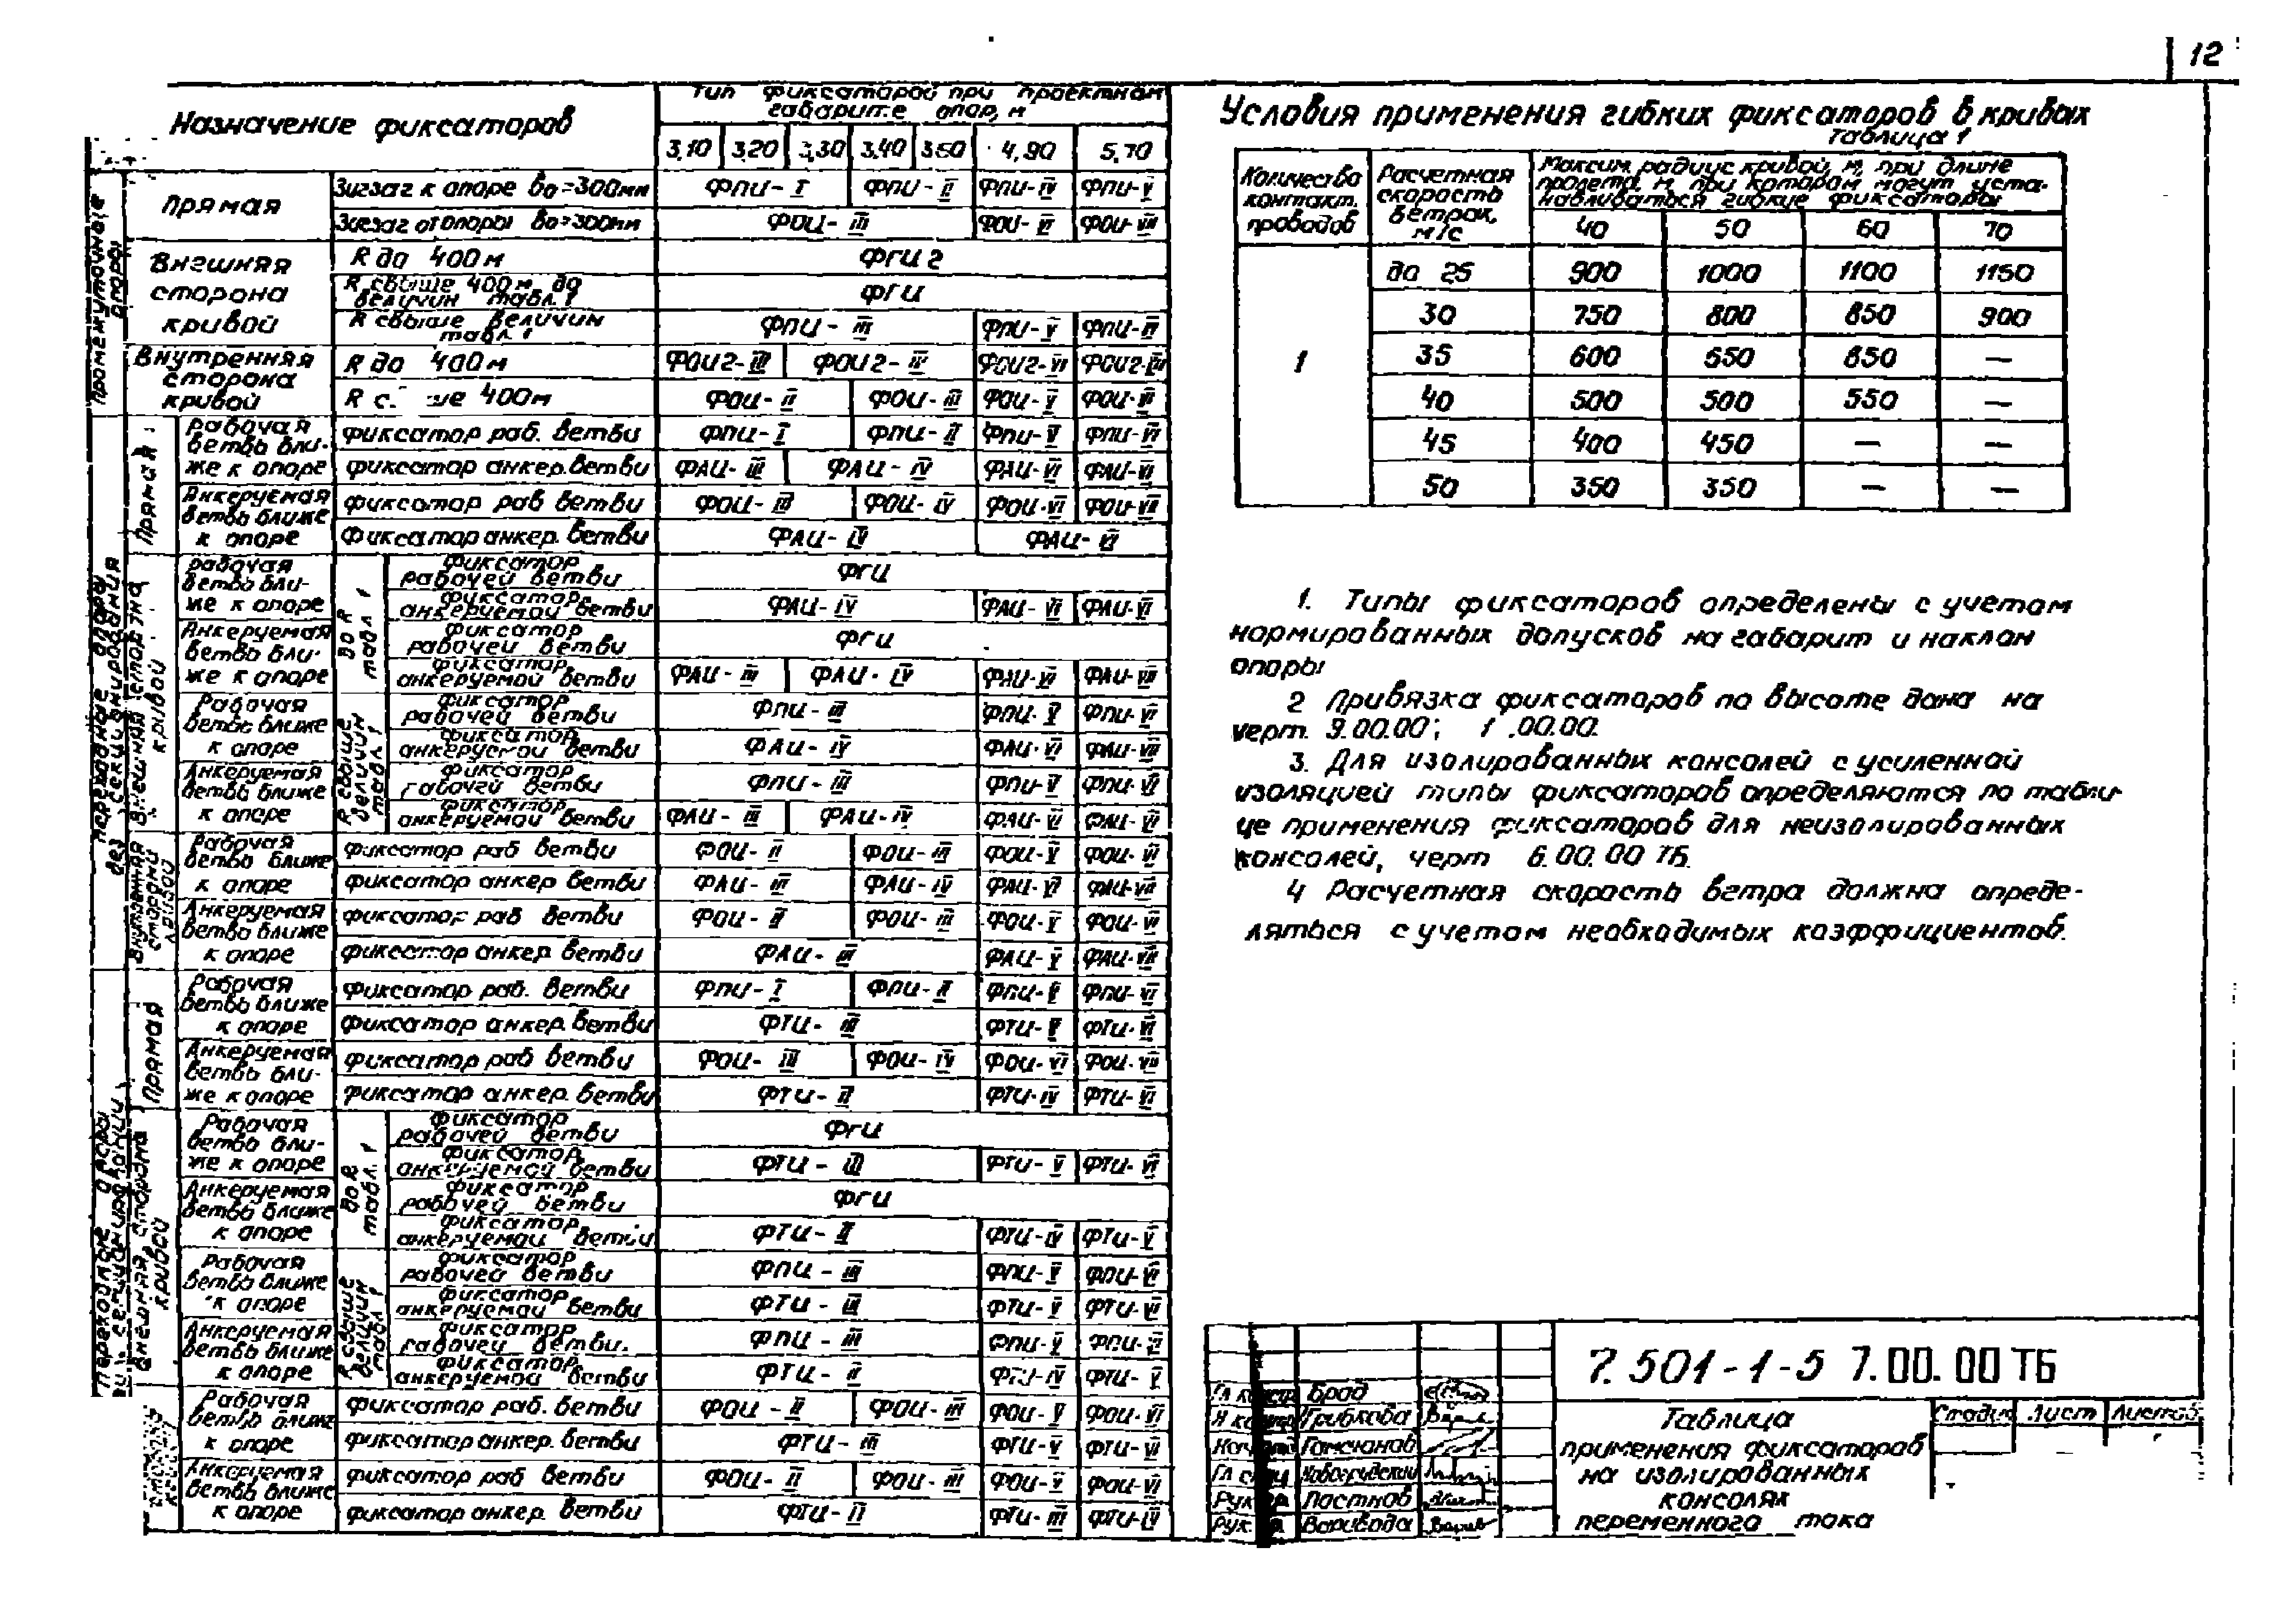 12
Назначение фиксаторов
Тип фиксаторов при проектном
габарите опор, м
3,10 3,20 3,30 3,40 3,50 4,90 5,70
Промежуточные опоры
Прямая
Зигзаг к опоре во=300мм ФПИ-I ФПИ-II ФПИ-IV ФПИ-V
Зигзаг от опоры во=300мм ФОИ-III ФОИ-VI ФОИ-VII
Внешняя
сторона
кривой
R до 400м ФГИ2
R свыше 400м до
величин табл. 1 ФГИ
R свыше величин
табл. 1 ФПИ-III ФПИ-V ФПИ-VI
Внутренняя
сторона
кривой
R до 400м ФОИ2-III ФОИ2-IV ФОИ2-VI
R с 400м ФОИ-II ФОИ-III ФОИ-V ФОИ-VI
Прямая
Рабочая
ветвь бли-
же к опоре
фиксатор раб. ветви ФПИ-I ФПИ-II ФПИ-V ФПИ-VI
фиксатор анкер. ветви ФАИ-III ФАИ-IV ФАИ-VI ФАИ-VI
Анкеруемая
ветвь ближе
к опоре
фиксатор раб ветви ФОИ-III ФОИ-IV ФОИ-VI ФОИ-VII
Фиксатор анкер. ветви ФАИ-IV ФАИ-VI
до R
табл 1
Рабочая
ветвь бли-
же к опоре
фиксатор
рабочей ветви ФГИ
фиксатор
анкеруемой ветви ФАИ-IV ФАИ-VI ФАИ-VI
Анкеруемая
ветвь бли-
же к опоре
фиксатор
рабочей ветви ФГИ
фиксатор
анкеруемой ветви ФАИ-III ФАИ-IV ФАИ-VI ФАИ-VII
R свыше
величин
табл 1
Рабочая
ветвь ближе
к опоре
фиксатор
рабочей ветви ФПИ-III ФПИ-V ФПИ-VI
фиксатор
анкеруемой ветви ФАИ-IV ФАИ-VI ФАИ-VII
Анкеруемая
ветвь ближе
к опоре
фиксатор
рабочей ветви ФПИ-III ФПИ-V ФПИ-VI
фиксатор
анкеруемой ветви ФАИ-III ФАИ-IV ФАИ-VI ФАИ-VI
Рабочая
ветвь ближе
к опоре
фиксатор раб ветви ФОИ-II ФОИ-III ФОИ-V ФОИ-VI
фиксатор анкер ветви ФАИ-III ФАИ-IV ФАИ-VI ФАИ-VII
Анкеруемая
ветвь ближе
к опоре
фиксатор раб ветви ФОИ-II ФОИ-III ФОИ-V ФОИ-VI
фиксатор анкер ветви ФАИ-III ФАИ-V ФАИ-VII
Прямая
Рабочая
ветвь ближе
к опоре
фиксатор раб. ветви ФПИ-I ФПИ-II ФПИ-V ФПИ-VI
фиксатор анкер. ветви ФТИ-III ФТИ-V ФТИ-VI
Анкеруемая
ветвь бли-
же к опоре
фиксатор раб ветви ФОИ-III ФОИ-IV ФОИ-VI ФОИ-VII
фиксатор анкер. ветви ФТИ-II ФТИ-IV ФТИ-VI
до R
табл. 1
Рабочая
ветвь бли-
же к опоре
фиксатор
рабочей ветви ФГИ
фиксатор
анкеруемой ветви ФТИ-III ФТИ-V ФТИ-VI
Анкеруемая
ветвь ближе
к опоре
фиксатор
рабочей ветви ФГИ
фиксатор
анкеруемой ветви ФТИ-II ФТИ-IV ФТИ-V
R свыше
величин
табл 1
Рабочая
ветвь ближе
к опоре
фиксатор
рабочей ветви ФПИ-III ФПИ-V ФПИ-VI
фиксатор
анкеруемой ветви ФТИ-III ФТИ-V ФТИ-VI
Анкеруемая
ветвь ближе
к опоре
фиксатор
рабочей ветви. ФПИ-III ФПИ-V ФПИ-VI
фиксатор
анкеруемой ветви ФТИ-II ФТИ-IV ФТИ-V
Рабочая
ветвь ближе
к опоре
фиксатор раб. ветви ФОИ-II ФОИ-III ФОИ-V ФОИ-VI
фиксатор анкер. ветви ФТИ-III ФТИ-V ФТИ-VI
Анкеруемая
ветвь ближе
к опоре
фиксатор раб ветви ФОИ-II ФОИ-III ФОИ-V ФОИ-VI
фиксатор анкер ветви ФТИ-II ФТИ-III ФТИ-IV
Условия применения гибких фиксаторов в кривых
таблица 1
Количество
контакт.
проводов
Расчетная
скорость
ветрок,
м/с
Максим. радиус кривой, м, при длине
пролета, м, при котором могут уста-
навливаться гибкие фиксаторы
40 50 60 70
1
до 25 900 1000 1100 1150
30 750 800 850 900
35 600 650 650 —
40 500 500 550 —
45 400 450 — —
50 350 350 — —
1. Типы фиксаторов определены с учетом
нормированных допусков на габарит и наклон
опоры
2 Привязка фиксаторов по высоте дана на
черт. 9.00.00; 1 .00.00.
3. Для изолированных консолей с усиленной
изоляцией типы фиксаторов определяются по табли-
це применения фиксаторов для неизолированных
консолей, черт 6.00.00 ТБ.
4 Расчетная скорость ветра должна опреде-
ляться с учетом необходимых коэффициентов.
7.501-1-5 7.00.00 ТБ
Брод
Грибкова
Новогрудский
Рук Постнов
Рук. Варивода
Таблица
применения фиксаторов
на изолированных
консолях
переменного тока
Стадия Лист Листов